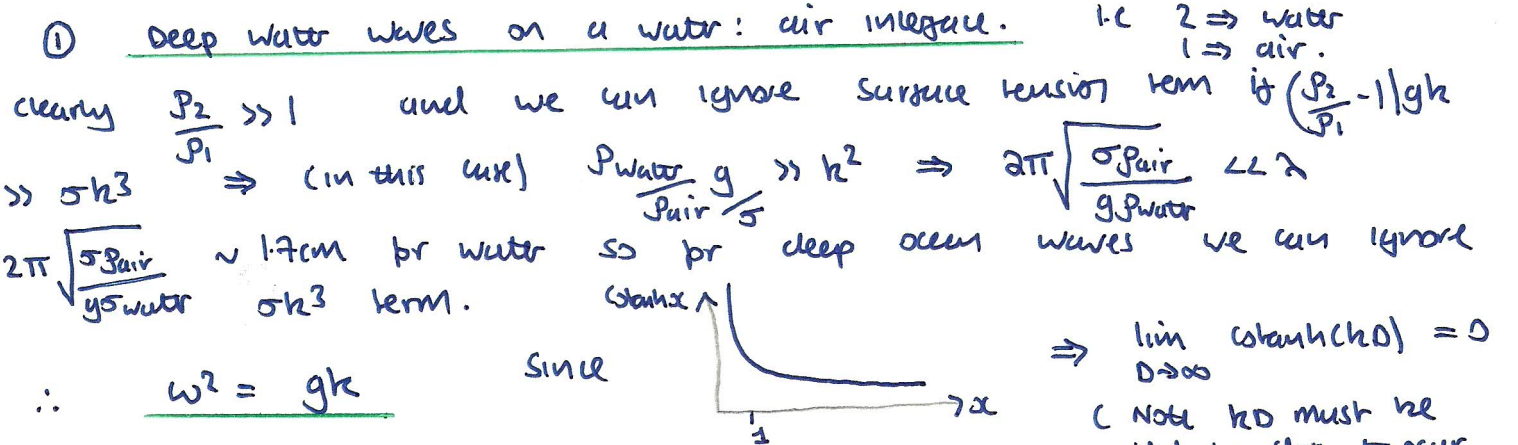 ① Deep water waves on a water : air interface. i.e 2 ⇒ water
1 ⇒ air.
clearly ρ₂/ρ₁ >> 1 and we can ignore surface tension term if (ρ₂/ρ₁ - 1)gk
>> σk³ ⇒ (in this case) ρwater/ρair g/σ >> k² ⇒ 2π√(σρair/gρwater) << λ
2π√(σρair/gσwater) ~ 1.7cm for water so for deep ocean waves we can ignore
σk³ term.
cotanhx
x
1
∴ ω² = gk since
⇒ lim D→∞ cotanh(kD) = 0
( Note kD must be